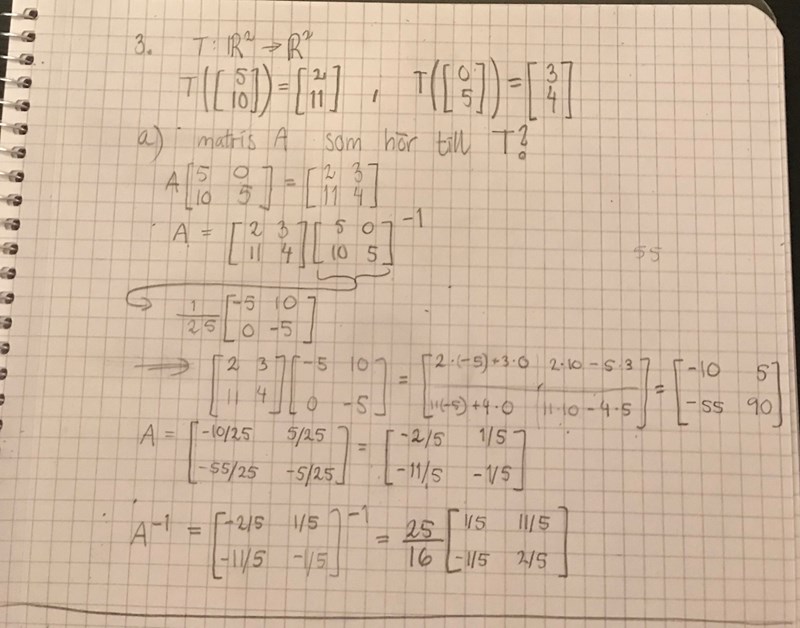 3. T: ℝ² → ℝ²
T([5 10]) = [2 11] , T([0 5]) = [3 4]
a) matris A som hör till T?
A [5 0; 10 5] = [2 3; 11 4]
A = [2 3; 11 4] [5 0; 10 5]⁻¹
55
1/25 [-5 10; 0 -5]
⟹ [2 3; 11 4] [-5 10; 0 -5] = [2·(-5)+3·0 2·10-5·3; 11(-5)+4·0 11·10-4·5] = [-10 5; -55 90]
A = [-10/25 5/25; -55/25 -5/25] = [-2/5 1/5; -11/5 -1/5]
A⁻¹ = [-2/5 1/5; -11/5 -1/5]⁻¹ = 25/16 [1/5 11/5; -1/5 2/5]